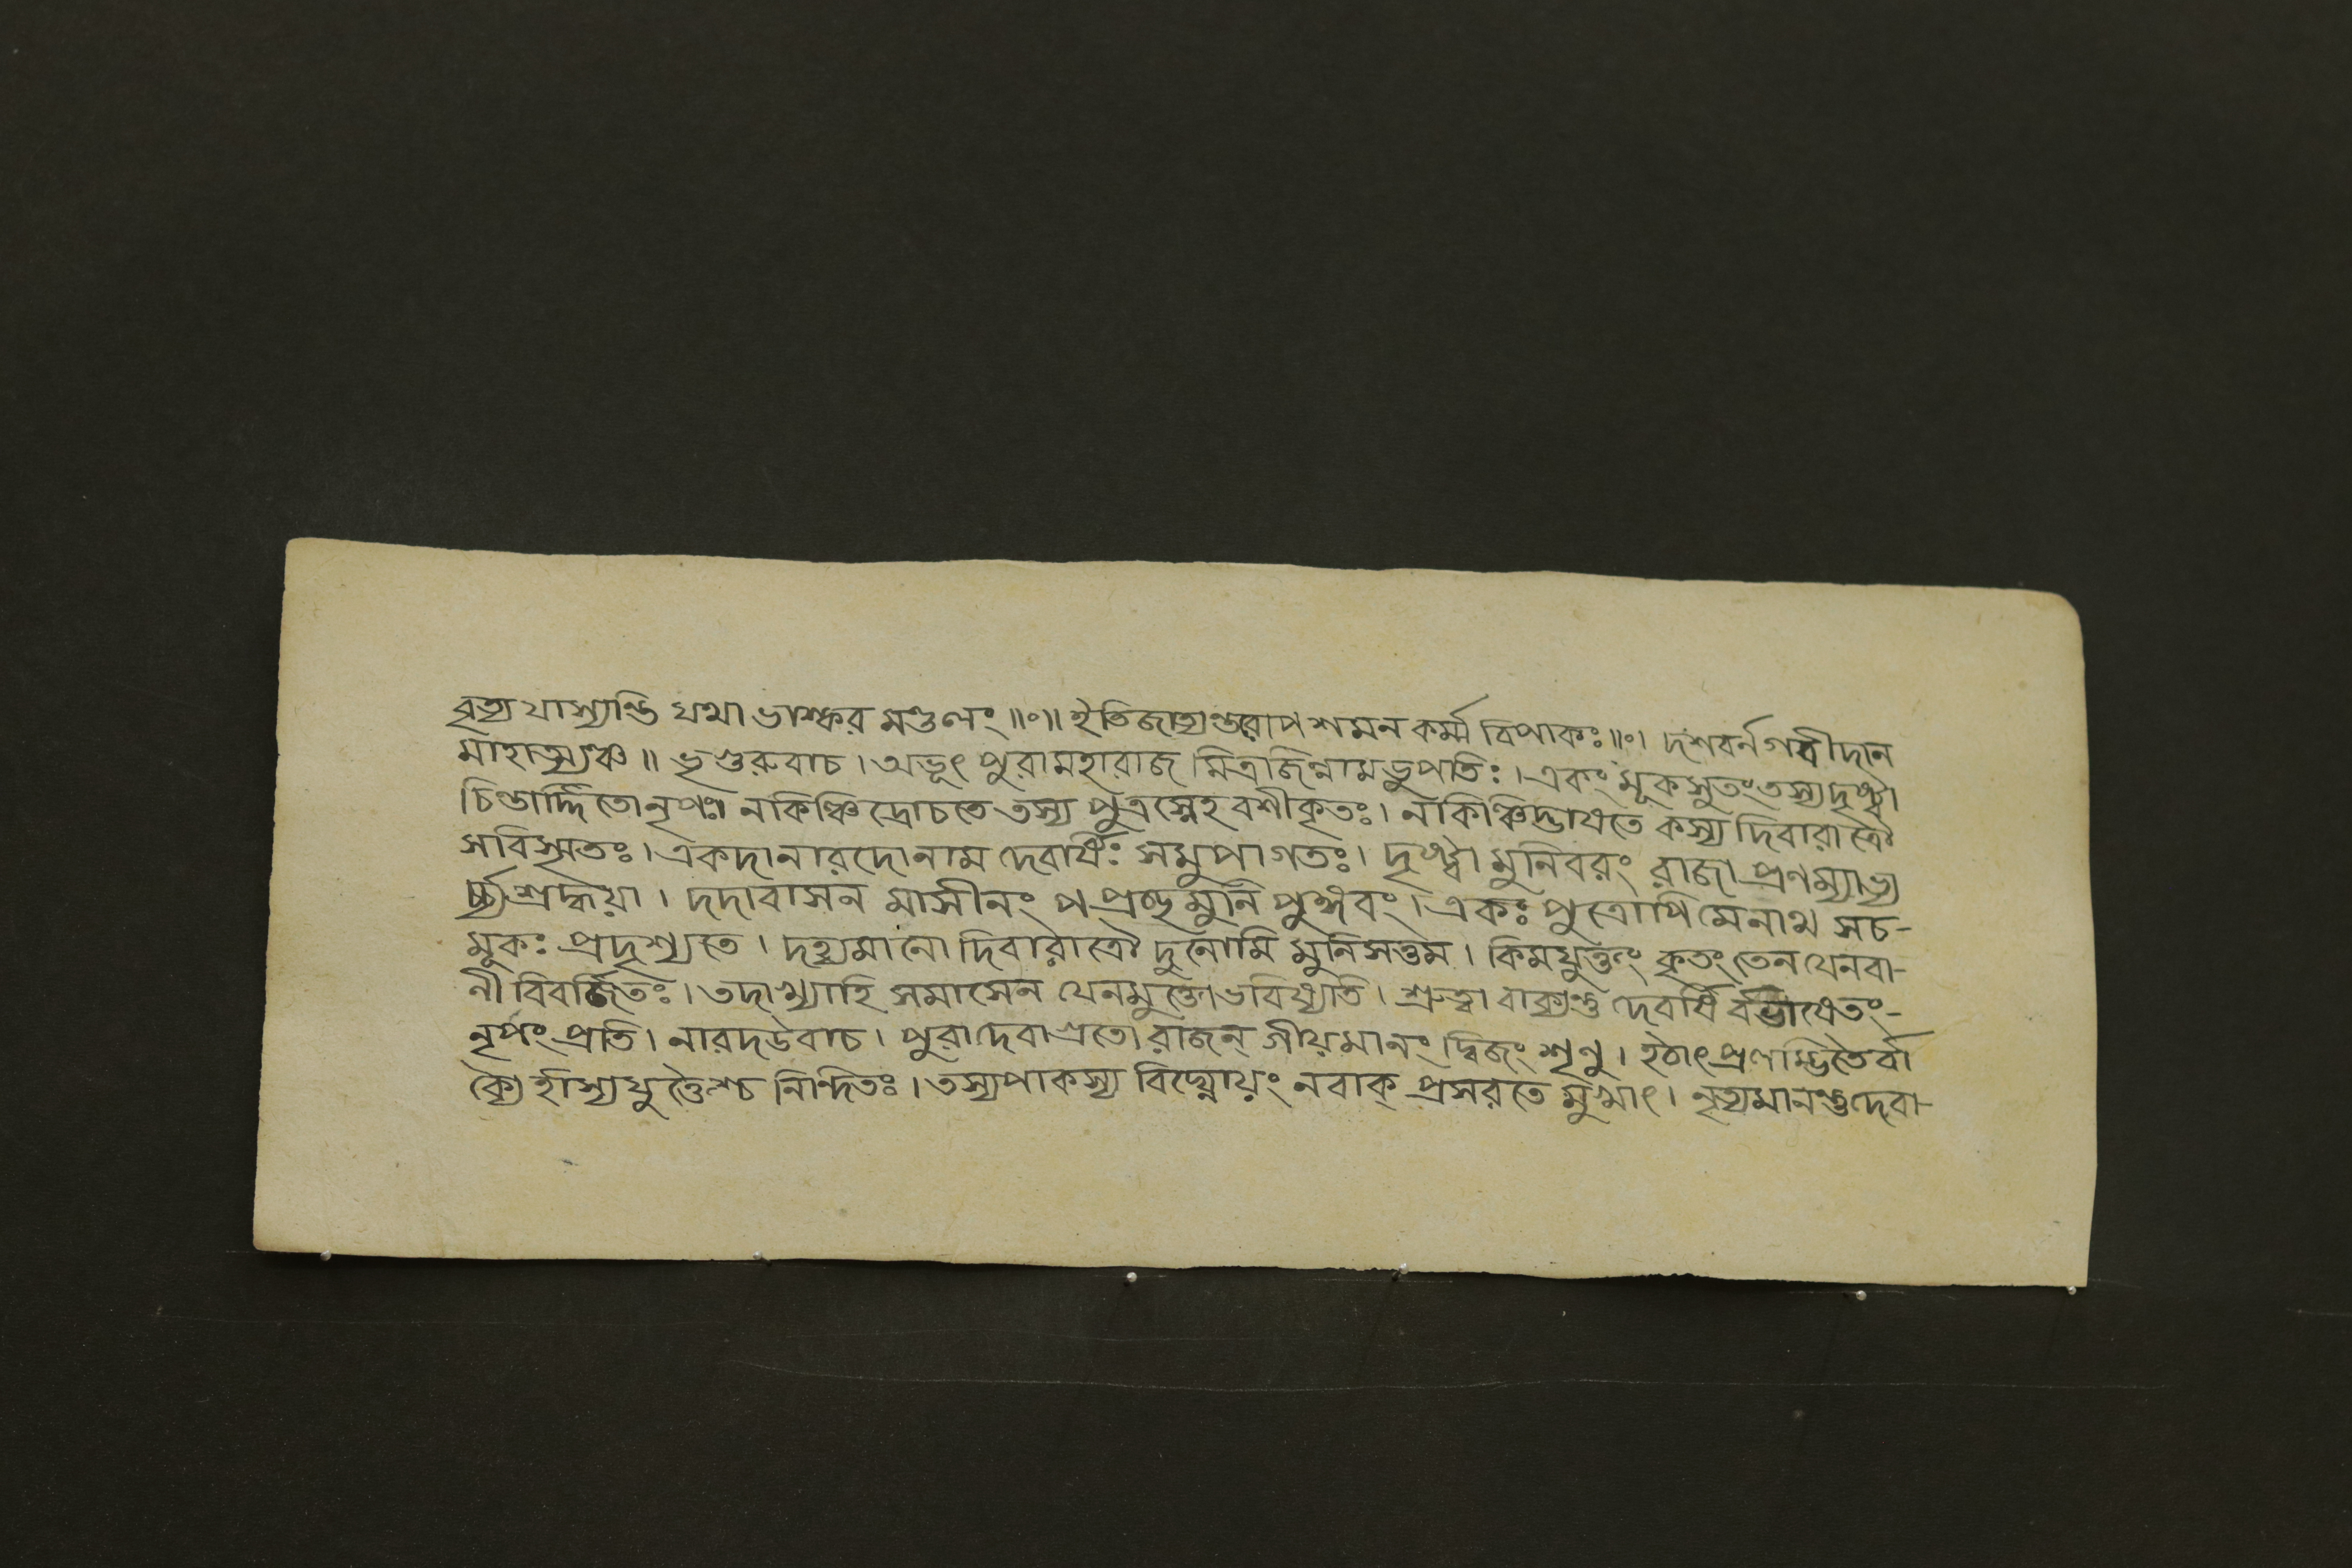 বৃত্য যাস্যান্তি যথা ভাস্কর মণ্ডলং ॥০॥ ইতিজাত্যন্তরোপ শমন কর্ম্ম বিপাকঃ ॥০। দশবর্ন গবীদান
মাহাত্ম্যঞ্চ ॥ ভৃগুরুবাচ। অভূৎ পুরামহারাজ মিত্রজিন্নামভুপতিঃ। একং মূকসুতং তস্য দৃষ্ট্বা
চিন্তার্দ্দিতো নৃপঃ। নকিঞ্চিদ্রোচতে তস্য পুত্রস্নেহ বশীকৃতঃ। নকিঞ্চিদ্ভাষতে কস্য দিবারাত্রৌ
সবিস্মৃতঃ। একদানারদোনাম দেবর্ষিঃ সমুপাগতঃ। দৃষ্ট্বা মুনিবরং রাজা প্রণম্যাভ্য
র্চ্চ্য শ্রদ্ধয়া। দদাবাসন মাসীনং পপ্রচ্ছ মুনি পুঙ্গবং। একঃ পুত্রোপি মেনাথ সচ-
মূকঃ প্রদৃশ্যতে। দহ্যমানো দিবারাত্রৌ দুনোমি মুনিসত্তম। কিমযুক্তং কৃতং তেন যেনবা-
নী বিবর্জিতঃ। তদাখ্যাহি সমাসেন যেনমুক্তোভবিষ্যতি। শ্রুত্বা বাক্যন্তু দেবর্ষি র্বভাষেতং-
নৃপং প্রতি। নারদউবাচ। পুরাদেবাগ্রতো রাজন্ গীয়মানং দ্বিজং শৃনু। হঠাৎ প্রলম্ভিতৈর্বা
ক্যৈ র্হাস্যযুক্তৈশ্চ নিন্দিতঃ। তস্যপাকস্য বিঘ্নোয়ং নবাক্ প্রসরতে মুখাৎ। নৃত্যমানন্তুদেবা-